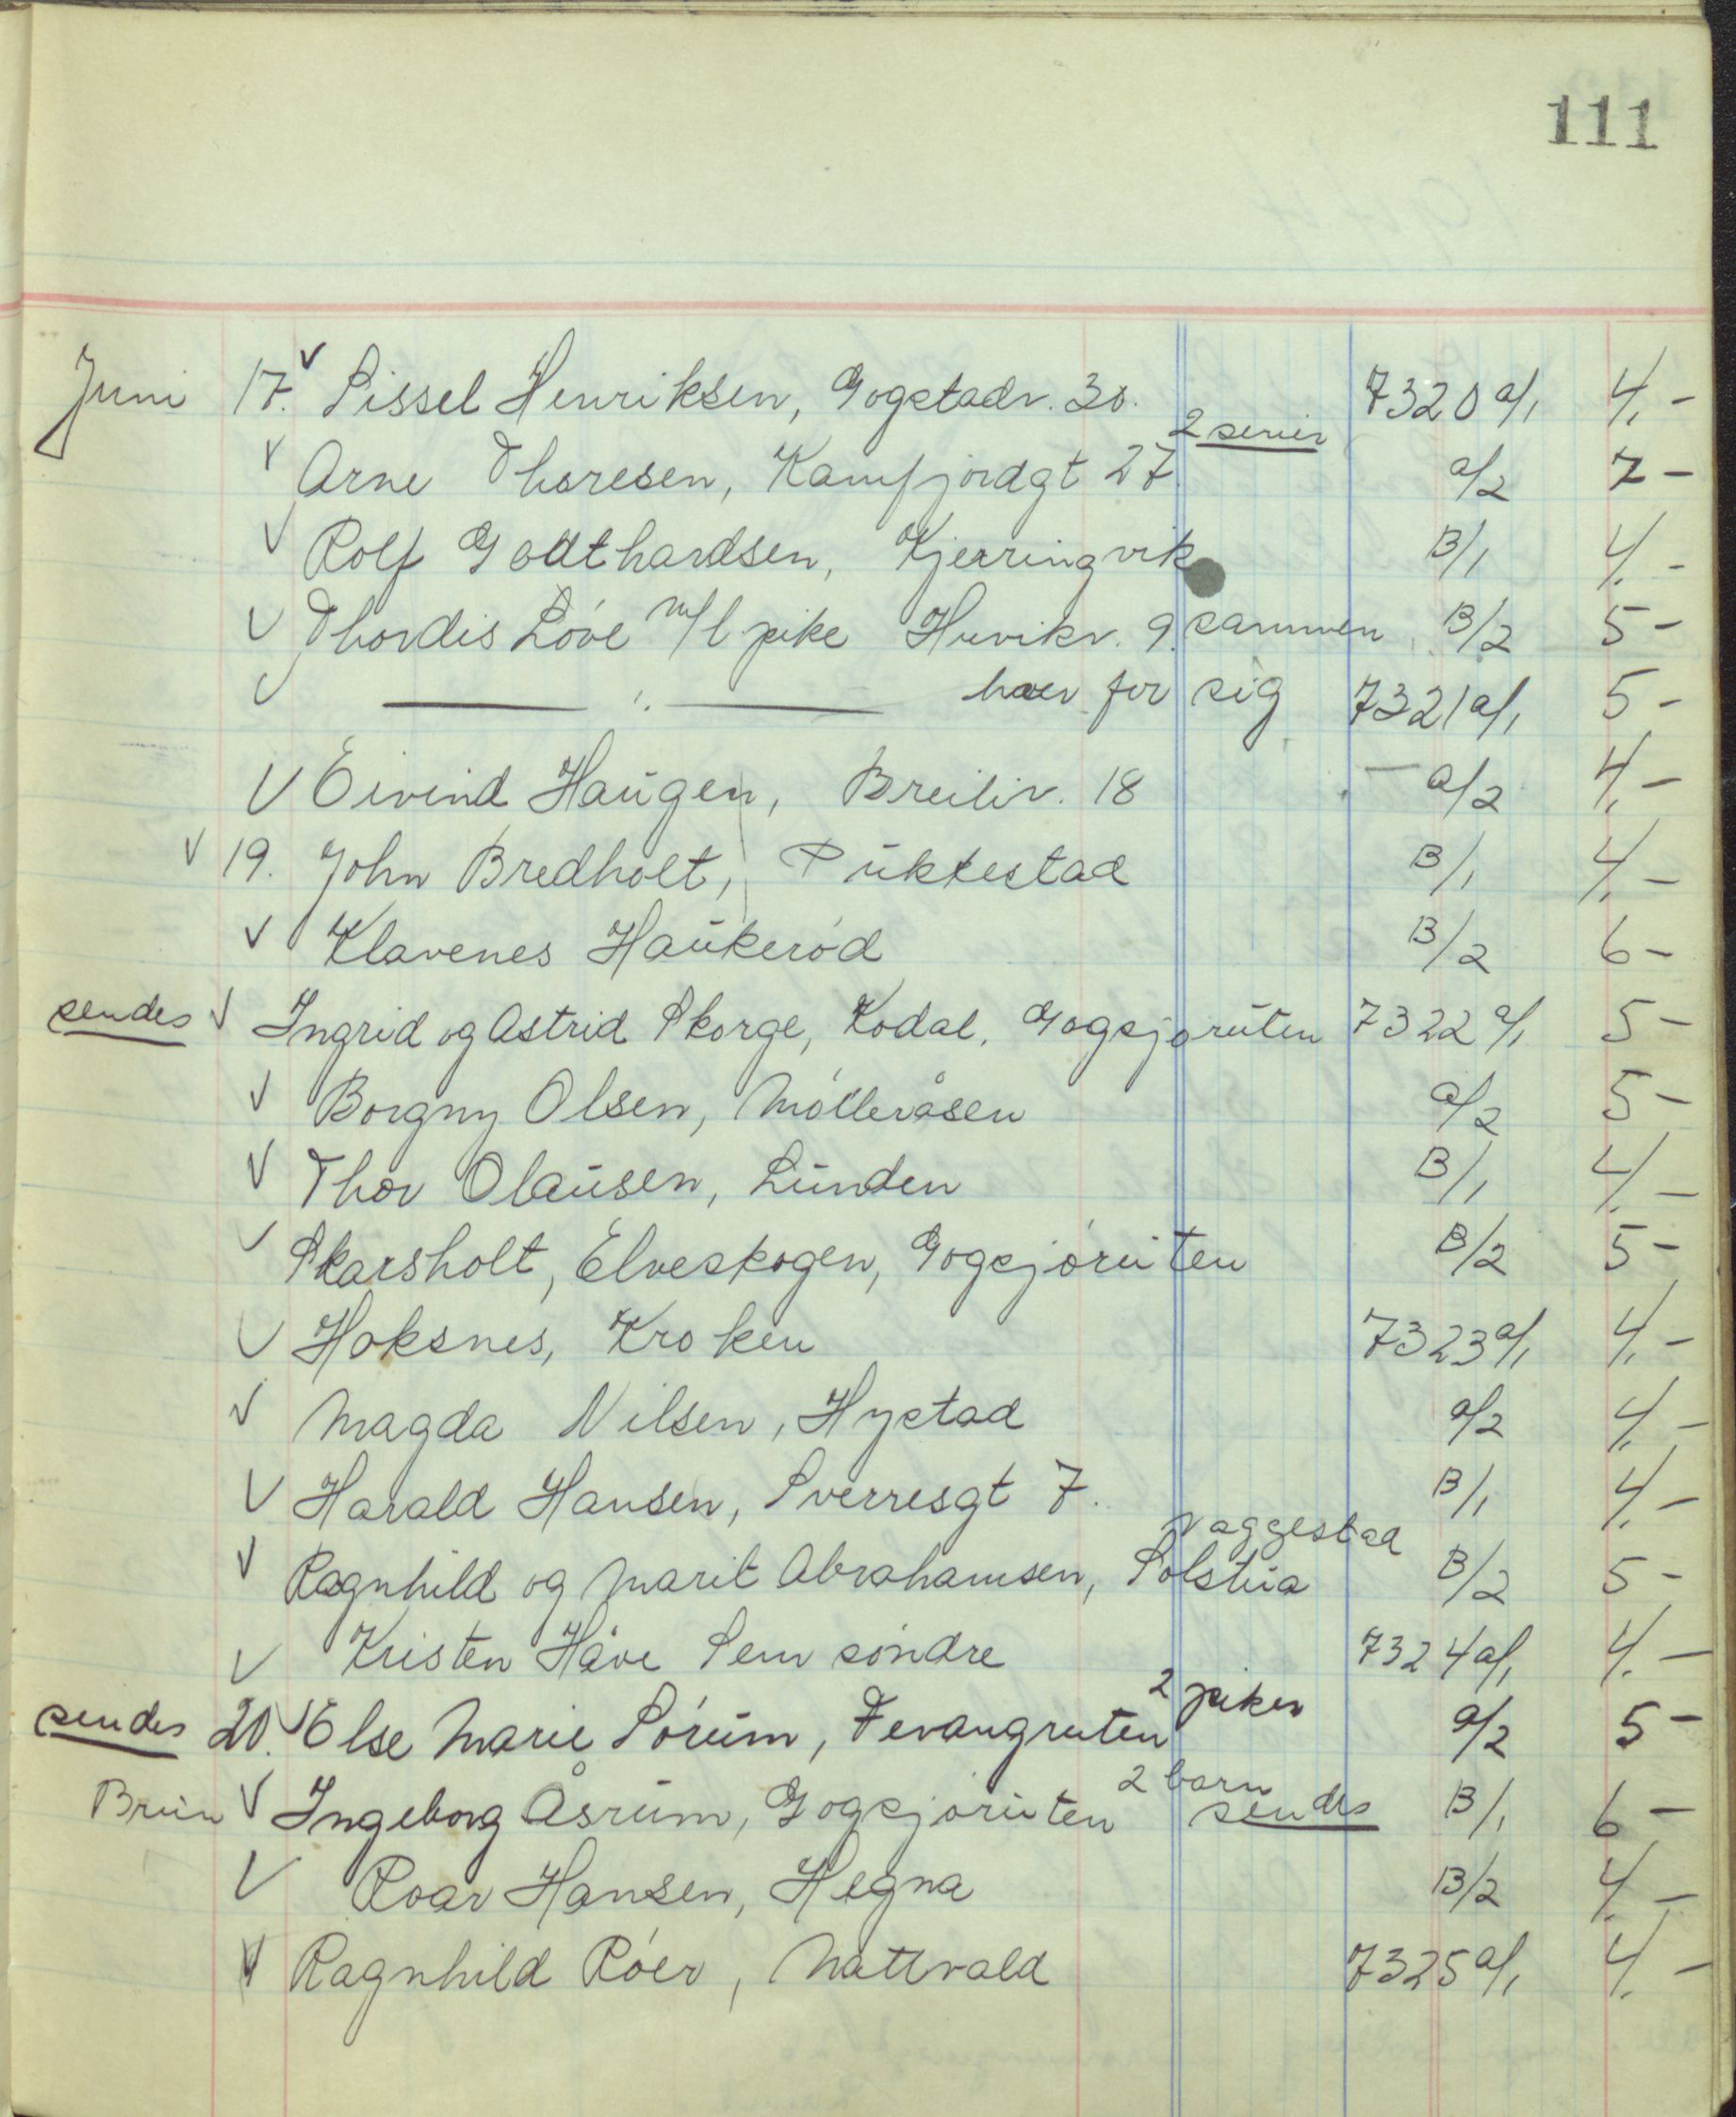 111
Juni 17. v Sissel Henriksen, Gogstadv. 30. 7320 a/1 4,-
v Arne Thoresen, Kamfjordgt 27 2 serier a/2 7 -
v Rolf Godthardsen, Kjerringvik B/1 4. -
v Thordis Löve m/l pike Huvikv. 9. sammen B/2 5 -
v —— ,, —— hver for sig 7321 a/1 5 -
v Eivind Haugen, Breiliv. 18 — a/2 4,-
v 19. John Bredholt, Pukkestad B/1 4. -
v Klavenes Haukeröd B/2 6 -
sendes v Ingrid og Astrid Skorge, Kodal, Gogsjøruten 7322 a/1 5 -
v Borgny Olsen, Mölleråsen a/2 5 -
v Thor Olausen, Lunden B/1 4. -
v Skarsholt, Elveskogen, Gogsjöruten B/2 5 -
v Hoksnes, Kroken 7323 a/1 4. -
v Magda Nilsen, Hystad a/2 4. -
v Harald Hansen, Sverresgt 7. B/1 4. -
Vaggestad
v Ragnhild og Marit Abrahamsen, Solstua B/2 5 -
v Kristen Håve Sem söndre 7324 a/1 4. -
sendes 20. v Else Marie Sörum, Tevangruten 2 piker a/2 5 -
Brun v Ingeborg Åsrum, Gogsjøruten 2 barn sendes B/1 6 -
v Roar Hansen, Hegna B/2 4. -
v Ragnhild Röer, Nattvald 7325 a/1 4. -